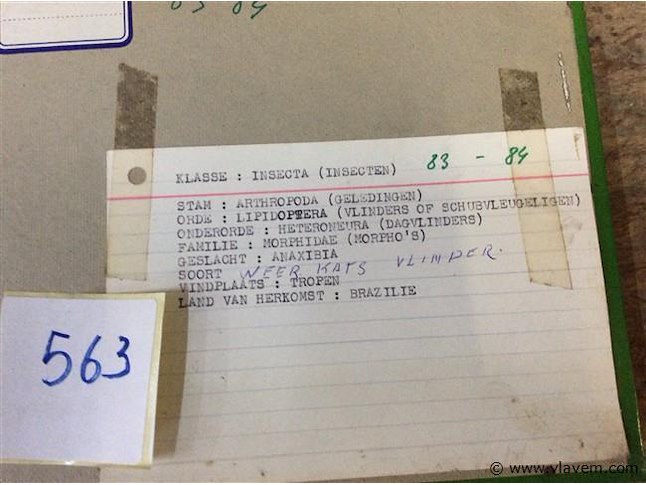 83 84
KLASSE : INSECTA (INSECTEN) 83 - 84
STAM : ARTHROPODA (GELEDINGEN)
ORDE : LIPIDOPTERA (VLINDERS OF SCHUBVLEUGELIGEN)
ONDERORDE : HETERONEURA (DAGVLINDERS)
FAMILIE : MORPHIDAE (MORPHO'S)
GESLACHT : ANAXIBIA
SOORT WEER KATS VLINDER.
VINDPLAATS : TROPEN
LAND VAN HERKOMST : BRAZILIE
563
© www.vlavem.com